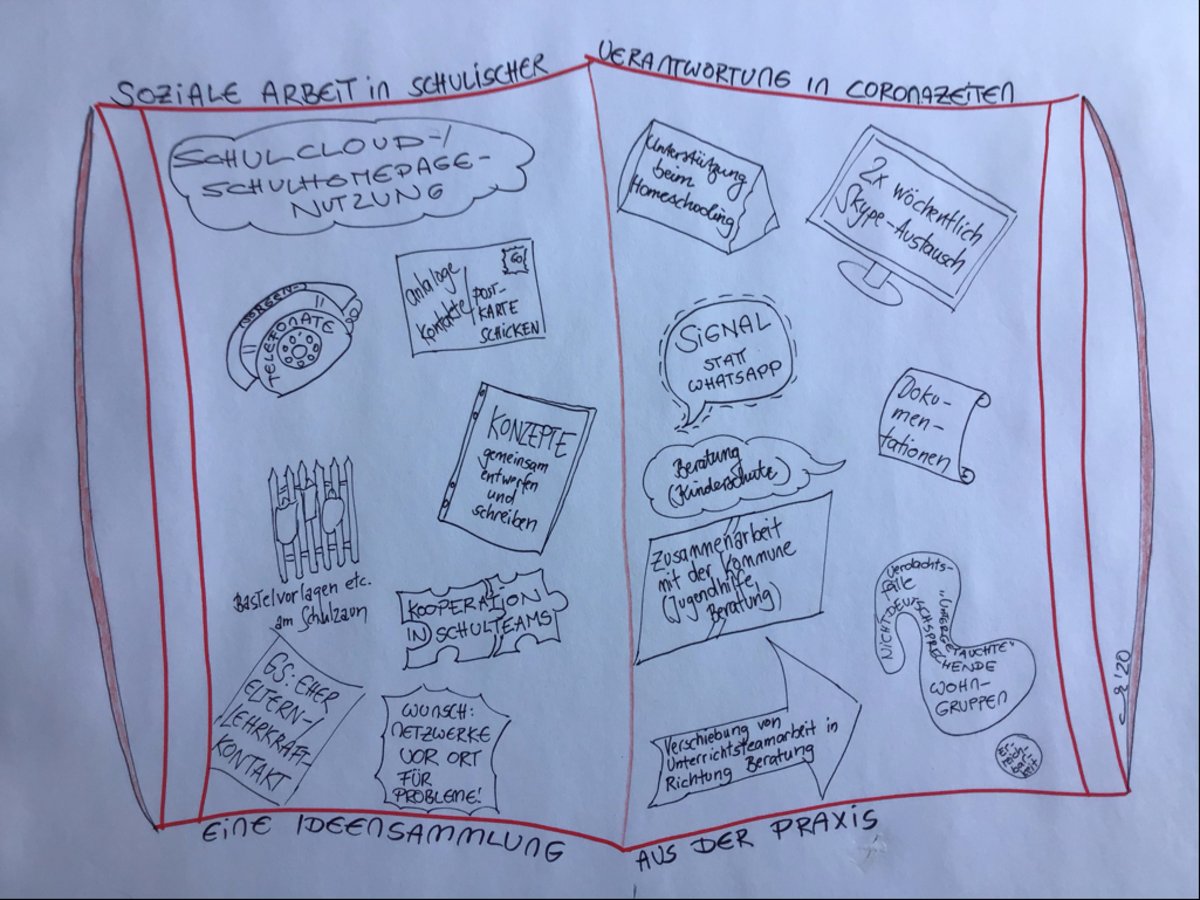 SOZIALE ARBEIT in SCHULISCHER
VERANTWORTUNG in CORONAZEITEN
SCHULCLOUD-/
SCHULHOMEPAGE-
NUTZUNG
SORGEN-
TELEFONATE
analoge
Kontakte/
POST-
KARTE
SCHICKEN
GO
KONZEPTE
gemeinsam
entwerfen
und
schreiben
Bastelvorlagen etc.
am Schulzaun
KOOPERATION
IN SCHULTEAMS
GS: EHER
ELTERN-/
LEHRKRAFT-
KONTAKT
WUNSCH:
NETZWERKE
VOR ORT
FÜR
PROBLEME!
Unterstützung
beim
Homeschooling
2x wöchentlich
Skype-Austausch
SIGNAL
STATT
WHATSAPP
Doku-
men-
tationen
Beratung
(Kinderschutz)
Zusammenarbeit
mit der Kommune
(Jugendhilfe,
Beratung)
Verschiebung von
Unterrichtsteamarbeit in
Richtung Beratung
Verdachts-
fälle
"UNTERGETAUCHTE"
NICHT DEUTSCHSPRECHENDE
WOHN-
GRUPPEN
Er-
reich-
bar-
keit
'20
EINE IDEENSAMMLUNG
AUS DER PRAXIS